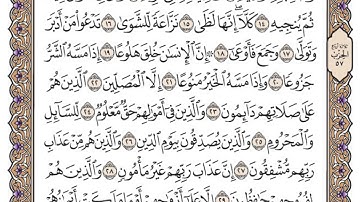 ثُمَّ يُنجِيهِ ١٤ كَلَّآ إِنَّهَا لَظَىٰ ١٥ نَزَّاعَةً لِّلشَّوَىٰ ١٦ تَدْعُواْ مَنْ أَدْبَرَ
وَتَوَلَّىٰ ١٧ وَجَمَعَ فَأَوْعَىٰٓ ١٨ ۞ إِنَّ ٱلْإِنسَٰنَ خُلِقَ هَلُوعًا ١٩ إِذَا مَسَّهُ ٱلشَّرُّ
جَزُوعًا ٢٠ وَإِذَا مَسَّهُ ٱلْخَيْرُ مَنُوعًا ٢١ إِلَّا ٱلْمُصَلِّينَ ٢٢ ٱلَّذِينَ هُمْ
عَلَىٰ صَلَاتِهِمْ دَآئِمُونَ ٢٣ وَٱلَّذِينَ فِىٓ أَمْوَٰلِهِمْ حَقٌّ مَّعْلُومٌ ٢٤ لِّلسَّآئِلِ
وَٱلْمَحْرُومِ ٢٥ وَٱلَّذِينَ يُصَدِّقُونَ بِيَوْمِ ٱلدِّينِ ٢٦ وَٱلَّذِينَ هُم مِّنْ عَذَابِ
رَبِّهِم مُّشْفِقُونَ ٢٧ إِنَّ عَذَابَ رَبِّهِمْ غَيْرُ مَأْمُونٍ ٢٨ وَٱلَّذِينَ هُمْ
لِفُرُوجِهِمْ حَٰفِظُونَ ٢٩ إِلَّا عَلَىٰٓ أَزْوَٰجِهِمْ أَوْ مَا مَلَكَتْ أَيْمَٰنُهُمْ
الحزب
٥٧